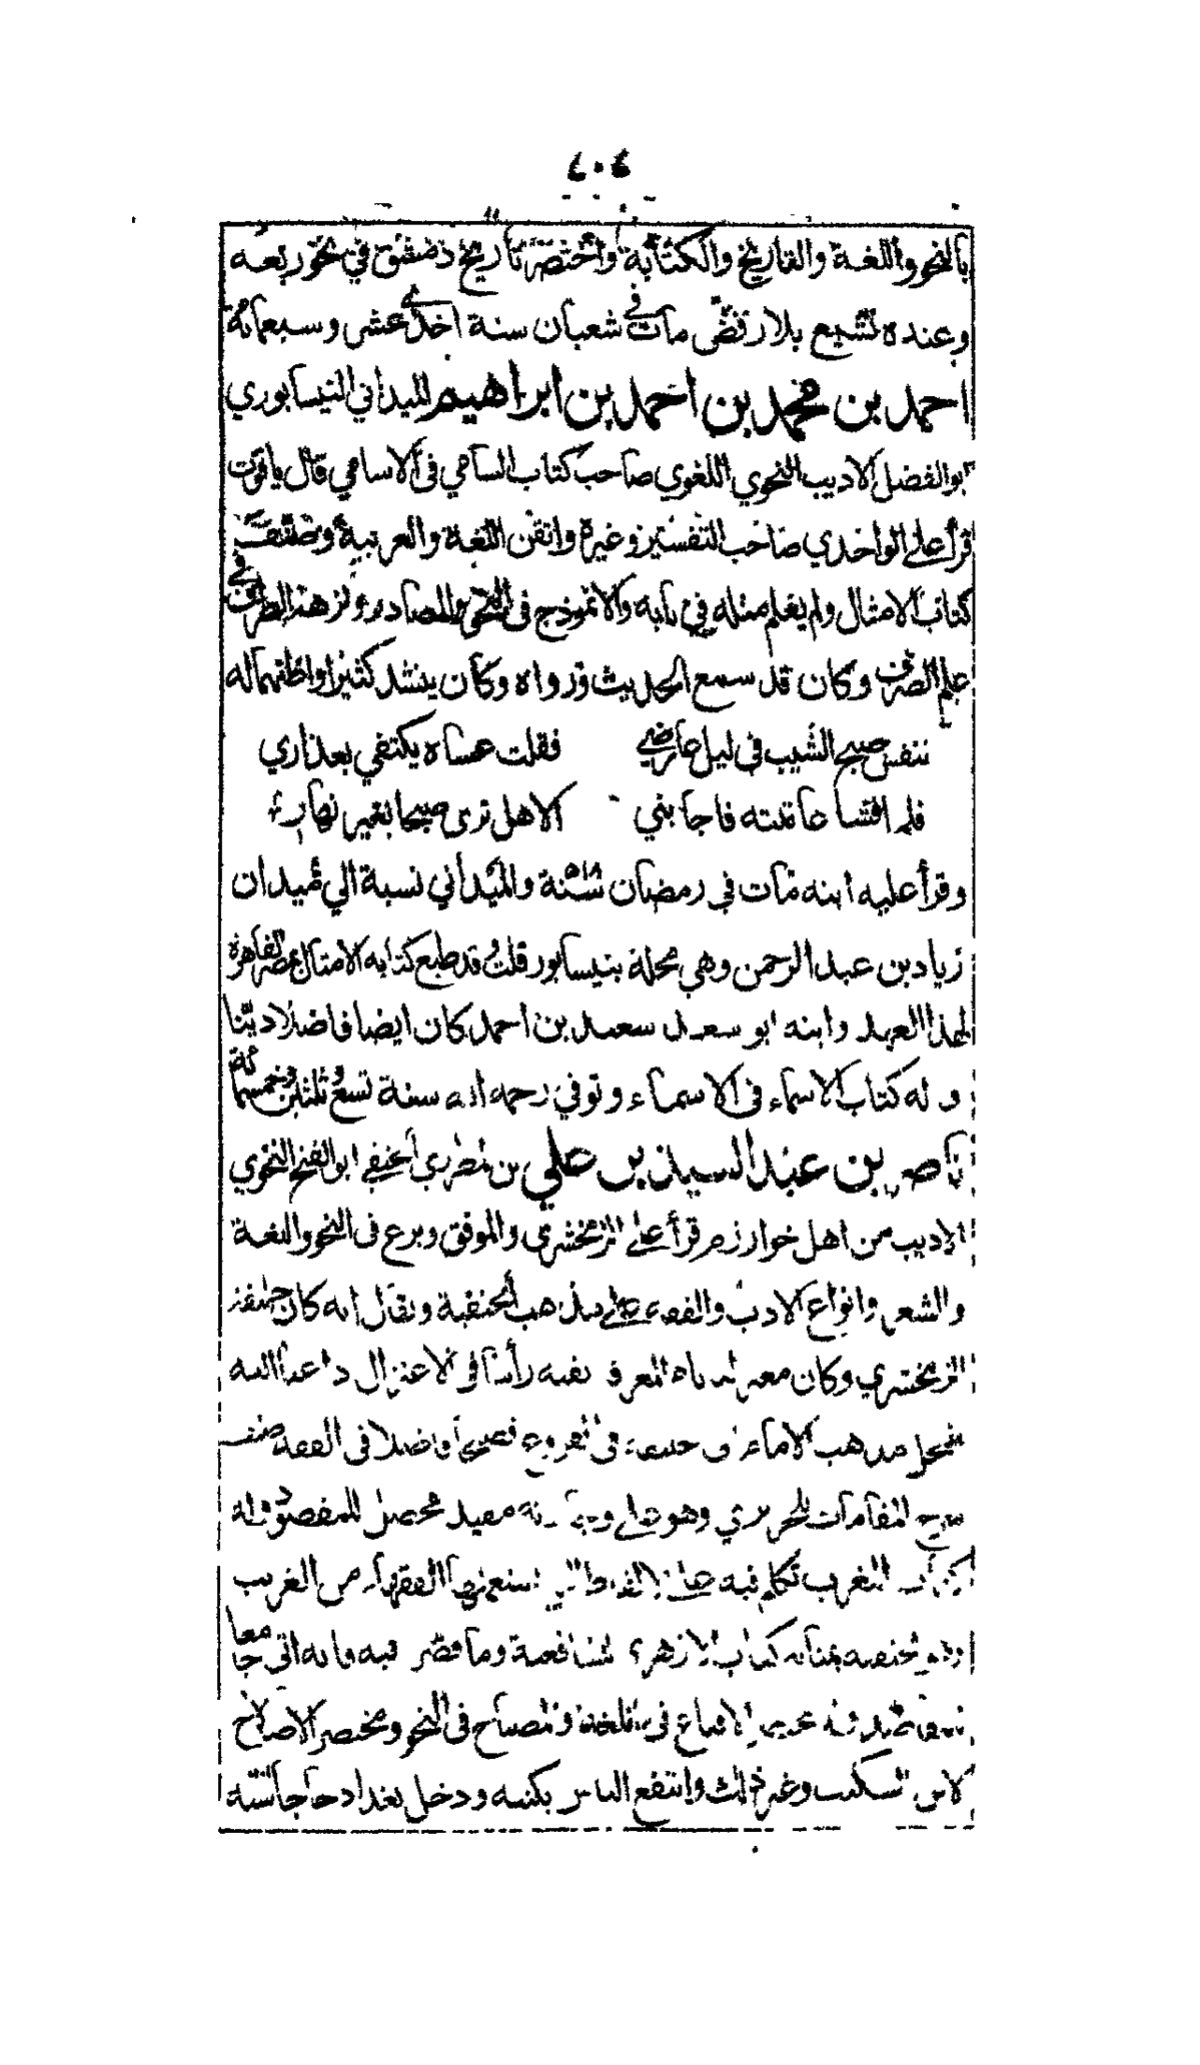 ٤٠٤
بالنحو واللغة والتاريخ والكتابة واختصر تاريخ دمشق في نحو ربعه
وعنده تشيع بلا رفض مات في شعبان سنة احدى عشر وسبعمائة
احمد بن محمد بن احمد بن ابراهيم الميداني النيسابوري
ابو الفضل الاديب النحوي اللغوي صاحب كتاب السامي في الاسامي قال ياقوت
قرأ على الواحدي صاحب التفسير وغيره واتقن اللغة والعربية وصنف
كتاب الامثال ولم يعلم مثله في بابه والانموذج في النحو والمصادر ونزهة الطرف في
علم الصرف وكان قد سمع الحديث ورواه وكان ينشد كثيرا واظنهما له
تنفس صبح الشيب في ليل عارضي فقلت عساه يكتفي بعذاري
فلما فشا عاتبته فاجابني الا هل ترى صبحا بغير نهار
وقرأ عليه ابنه مات في رمضان سنة ٥١٨ والميداني نسبة الي ميدان
زياد بن عبد الرحمن وهي محلة بنيسابور قلت وقد طبع كتابه الامثال بمصر القاهرة
لهذا العهد وابنه ابو سعد سعيد بن احمد كان ايضا فاضلا دينا
وله كتاب الاسماء في الاسماء وتوفي رحمه الله سنة تسع وثلثين وخمسمائة
ناصر بن عبد السيد بن علي بن مطرزي الحنفي ابو الفتح النحوي
الاديب من اهل خوارزم قرأ على الزمخشري والموفق وبرع في النحو واللغة
والشعر وانواع الادب والفقه على مذهب الحنفية ويقال انه كان خليفة
الزمخشري وكان معتزليا رأسا في الاعتزال داعيا اليه
ينتحل مذهب الامام ابي حنيفة في الفروع فصيحا فاضلا في الفقه صنف
شرح المقامات للحريري وهو على وجازته مفيد محصل للمقصود وله
كتاب المغرب تكلم فيه على الالفاظ التي يستعملها الفقهاء من الغريب
وهو للحنفية بمثابة كتاب الازهري للشافعية وما قصر فيه فانه اتى جامعا
الاقناع في اللغة والمصباح في النحو ومختصر الاصلاح
لابن السكيت وغير ذلك وانتفع الناس بكتبه ودخل بغداد حاجا سنة